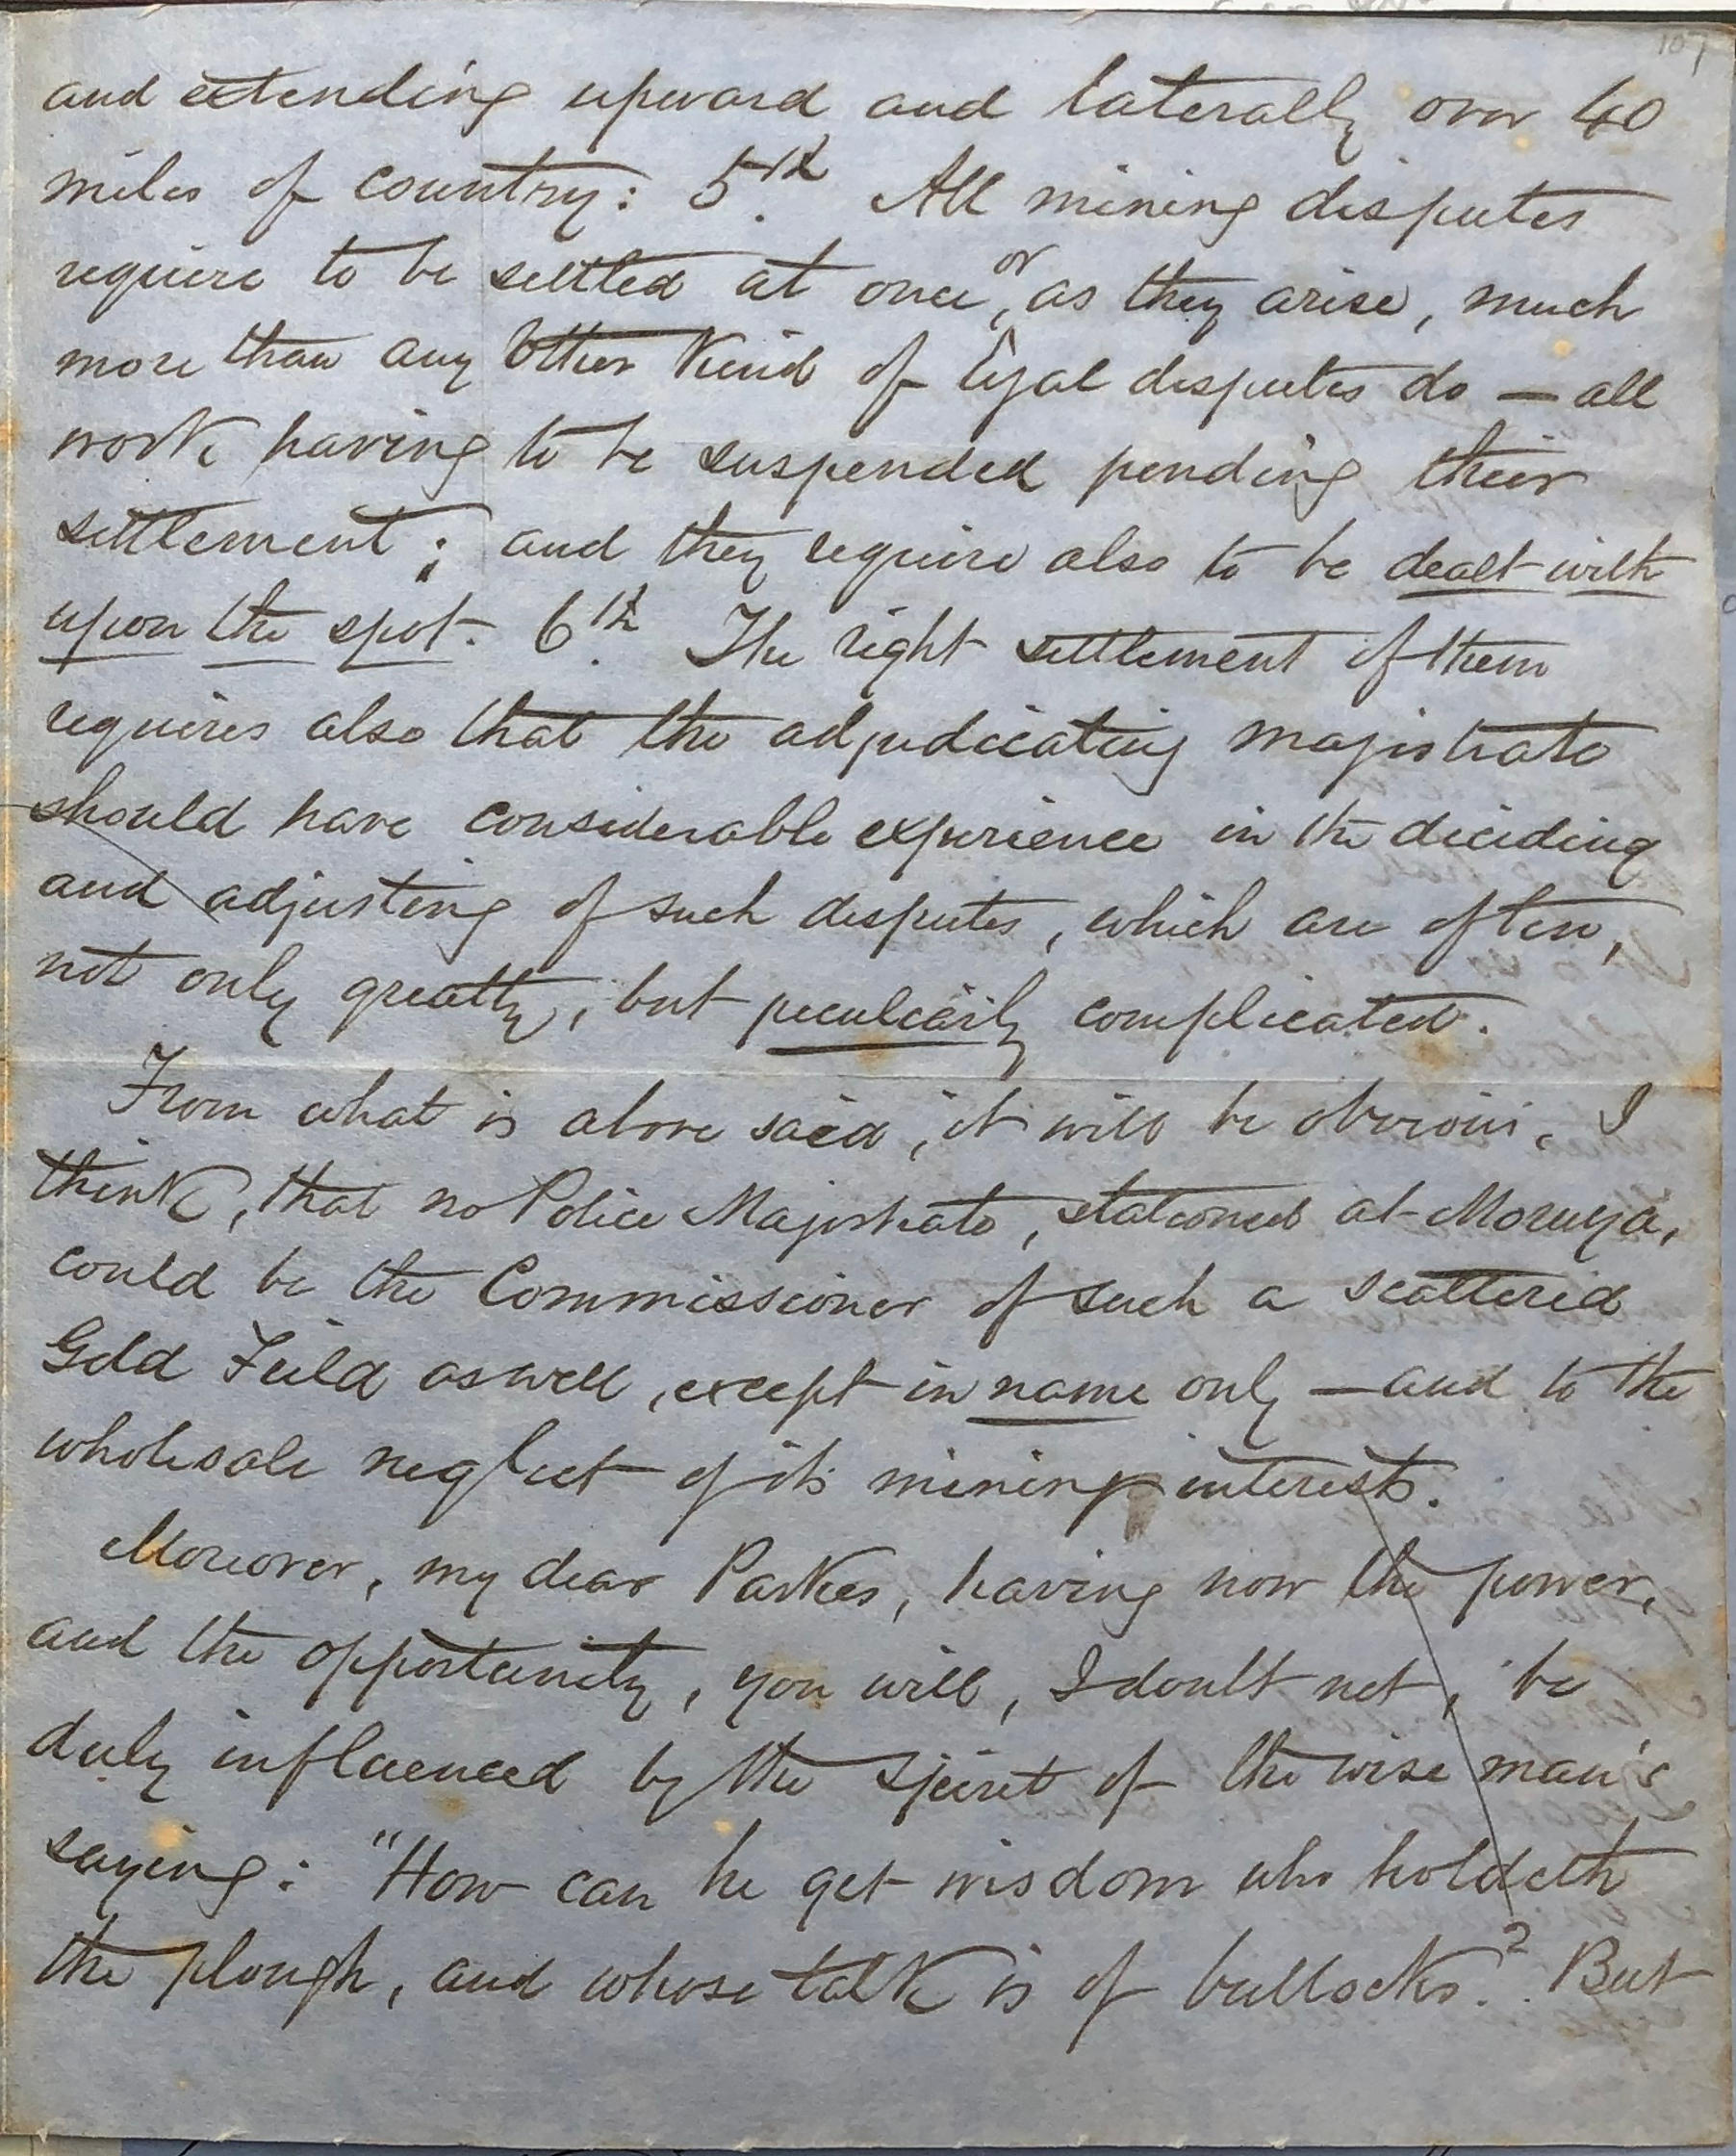 107
and extending upward and laterally over 40
miles of country: 5th. All mining disputes
require to be settled at once, or as they arise, much
more than any other kind of legal disputes do — all
work having to be suspended pending their
settlement; and they require also to be dealt with
upon the spot. 6th. The right settlement of them
requires also that the adjudicating magistrate
should have considerable experience in the deciding
and adjusting of such disputes, which are often,
not only greatly, but peculiarly complicated.
From what is above said, it will be obvious, I
think, that no Police Magistrate, stationed at Moruya,
could be the Commissioner of such a scattered
Gold Feild as well, except in name only — and to the
wholesale neglect of its mining interests.
Moreover, my dear Parkes, having now the power,
and the opportunity, you will, I doubt not, be
duly influenced by the spirit of the wise man's
saying: "How can he get wisdom who holdeth
the plough, and whose talk is of bullocks?. But